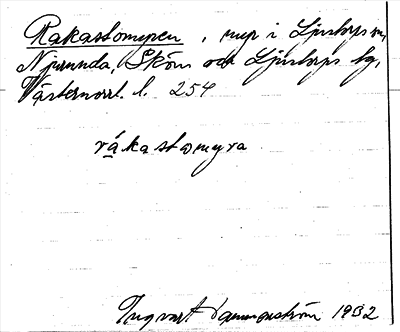 Rakastomyren, myr i Ljustorps sn,
Njurunda, Sköns och Ljustorps tg,
Västernorrl. l. 254
råkastωmyra
Ingvart 1932